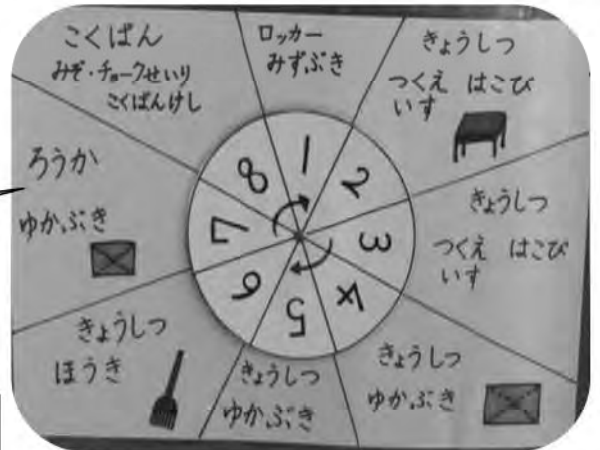 こくばん
みぞ・チョークせいり
こくばんけし
ロッカー
みずぶき
きょうしつ
つくえ はこび
いす
きょうしつ
つくえ はこび
いす
きょうしつ
ゆかぶき
きょうしつ
ゆかぶき
きょうしつ
ほうき
ろうか
ゆかぶき
1
2
3
4
5
6
7
8